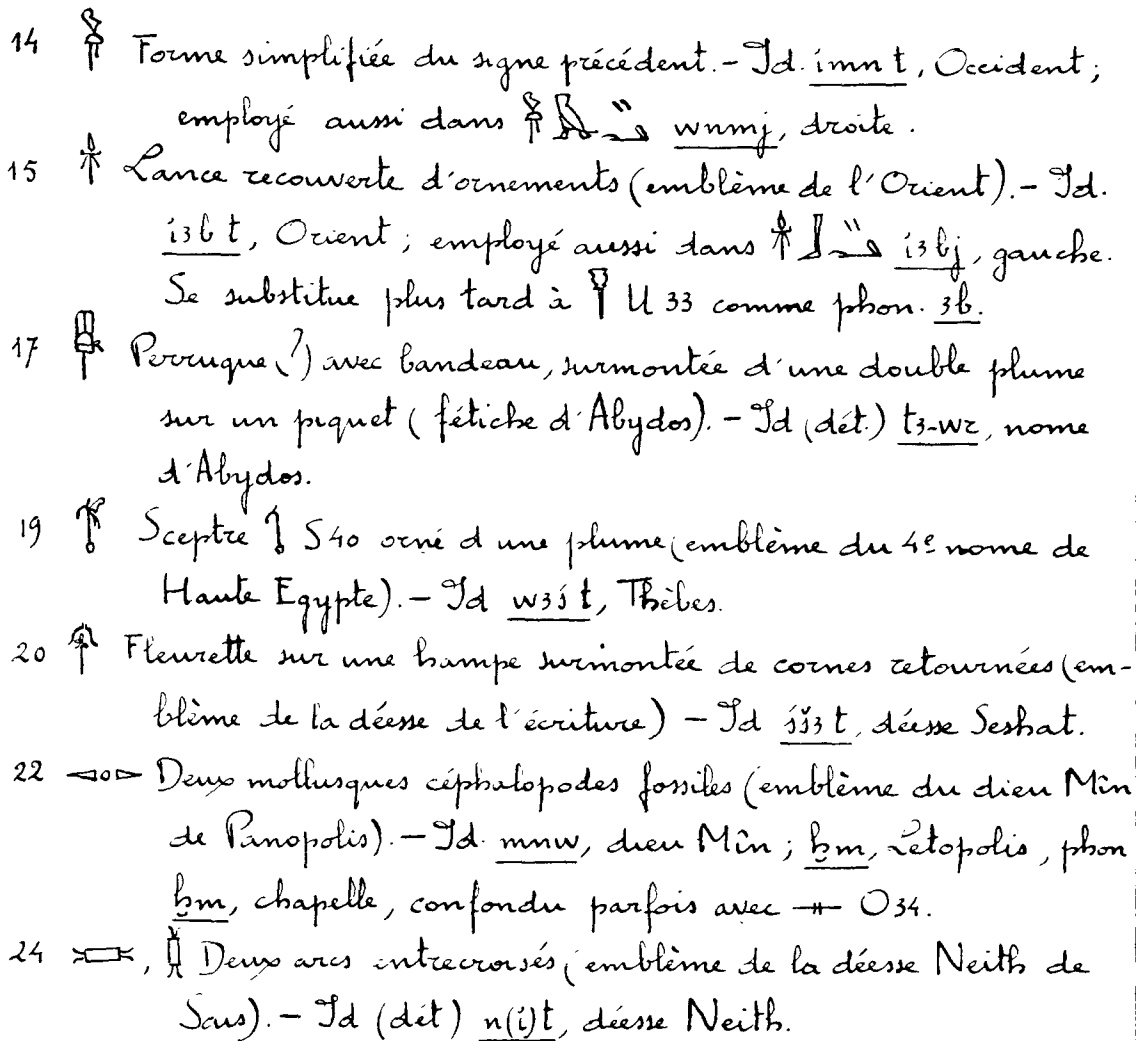 14 𓋀 Forme simplifiée du signe précédent. - Id. imn t, Occident;
employé aussi dans 𓋀 wnmj, droite.
15 𓋁 Lance recouverte d'ornements (emblème de l'Orient). - Id.
i3b t, Orient; employé aussi dans 𓋁𓃀 i3bj, gauche.
Se substitue plus tard à U 33 comme phon. 3b.
17 𓋃 Perruque (?) avec bandeau, surmontée d'une double plume
sur un piquet (fétiche d'Abydos). - Id (dét.) t3-wr, nome
d'Abydos.
19 𓋆 Sceptre 𓌀 S40 orné d une plume (emblème du 4e nome de
Haute Egypte). - Id w3ś t, Thèbes.
20 𓋇 Fleurette sur une hampe surmontée de cornes retournées (em-
blème de la déesse de l'écriture) - Id śš3 t, déesse Seshat.
22 𓋉 Deux mollusques céphalopodes fossiles (emblème du dieu Mîn
de Panopolis). - Id. mnw, dieu Mîn; ḫm, Létopolis, phon
ḫm, chapelle, confondu parfois avec 𓊃 O34.
24 𓋋, Deux arcs entrecroisés (emblème de la déesse Neith de
Saïs). - Id (dét) n(i)t, déesse Neith.